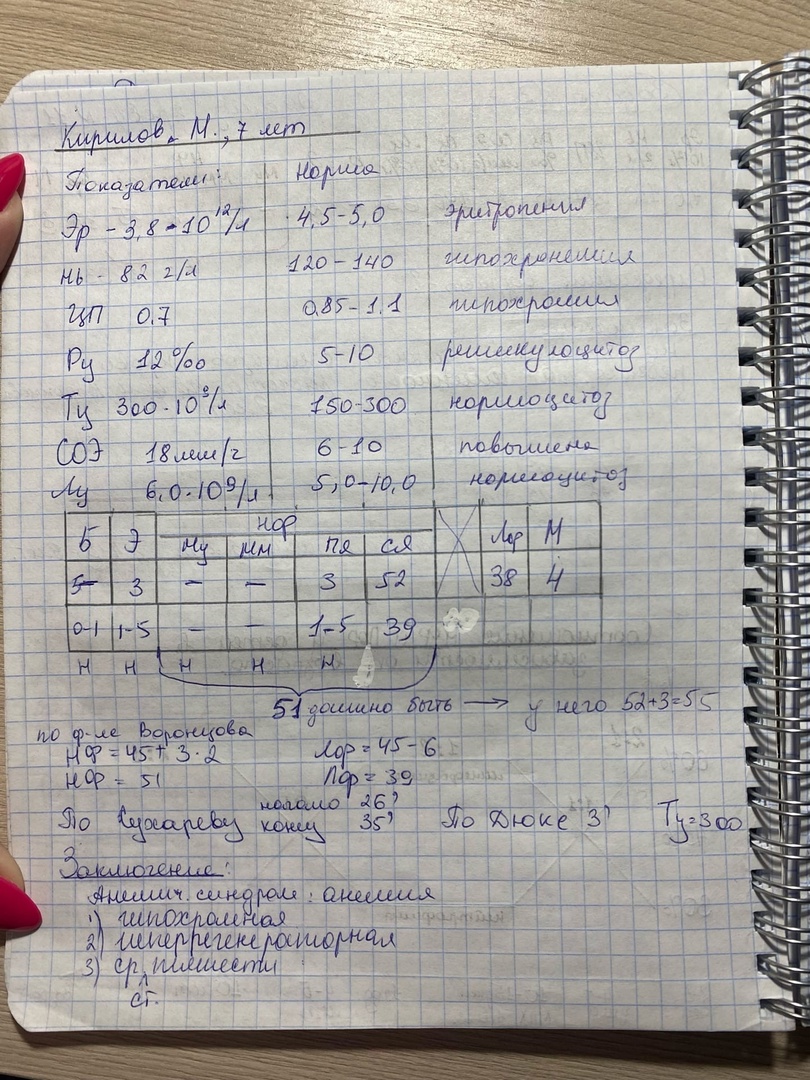 Кирилов. М., 7 лет
Показатели: Норма
Эр - 3,8 · 10¹²/л 4,5-5,0 эритропения
Hb - 82 г/л 120-140 гипохромемия
ЦП 0,7 0,85-1,1 гипохромия
Рц 12‰ 5-10 ретикулоцитоз
Тц 300·10⁹/л 150-300 нормоцитоз
СОЭ 18мм/г 6-10 повышена
Лц 6,0·10⁹/л 5,0-10,0 нормоцитоз
нф
Б Э Мц Мм ПЯ СЯ Лф М
5 3 - - 3 52 38 4
0-1 1-5 - - 1-5 39
н н н н н
51 должно быть → у него 52+3=55
по ф-ле Воронцова
НФ = 45 + 3·2 Лф = 45 - 6
НФ = 51 Лф = 39
По Сухареву начало 26' конец 35' По Дюке 3' Тц=300
Заключение:
Анемич. синдром: анемия
1) гипохромная
2) гиперрегенераторная
3) ср. тяжести
ст.